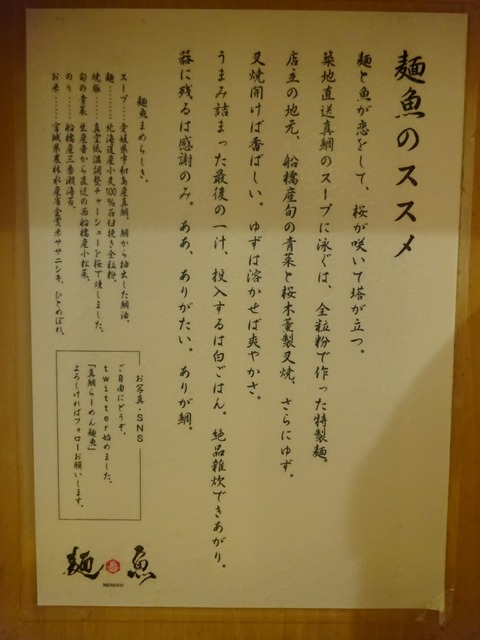 麺魚のススメ
麺と魚が恋をして、桜が咲いて塔が立つ。
築地直送真鯛のスープに泳ぐは、全粒粉で作った特製麺。
店主の地元、船橋産旬の青菜と桜木薫製叉焼、さらにゆず。
叉焼開けば香ばしい。ゆずは溶かせば爽やかさ。
うまみ詰まった最後の一汁、投入するは白ごはん。絶品雑炊できあがり。
器に残るは感謝のみ。ああ、ありがたい。ありが鯛。
麺魚まめちしき、
スープ……愛媛県宇和島産真鯛。鯛から抽出した鯛油。
麺……北海道産小麦100%石臼挽き全粒粉。
焼豚……真空低温調整チャーシューを桜で燻しました。
旬の青菜 生産者から直送の西船橋産小松菜。
のり……船橋産三番瀬海苔。
お米……宮城県農林水産省金賞米ササニシキ、ひとめぼれ。
お写真・SNS
ご自由にどうぞ。
twitter始めました。
「真鯛らーめん麺魚」
よろしければフォローお願いします。
麺魚
MENGYO